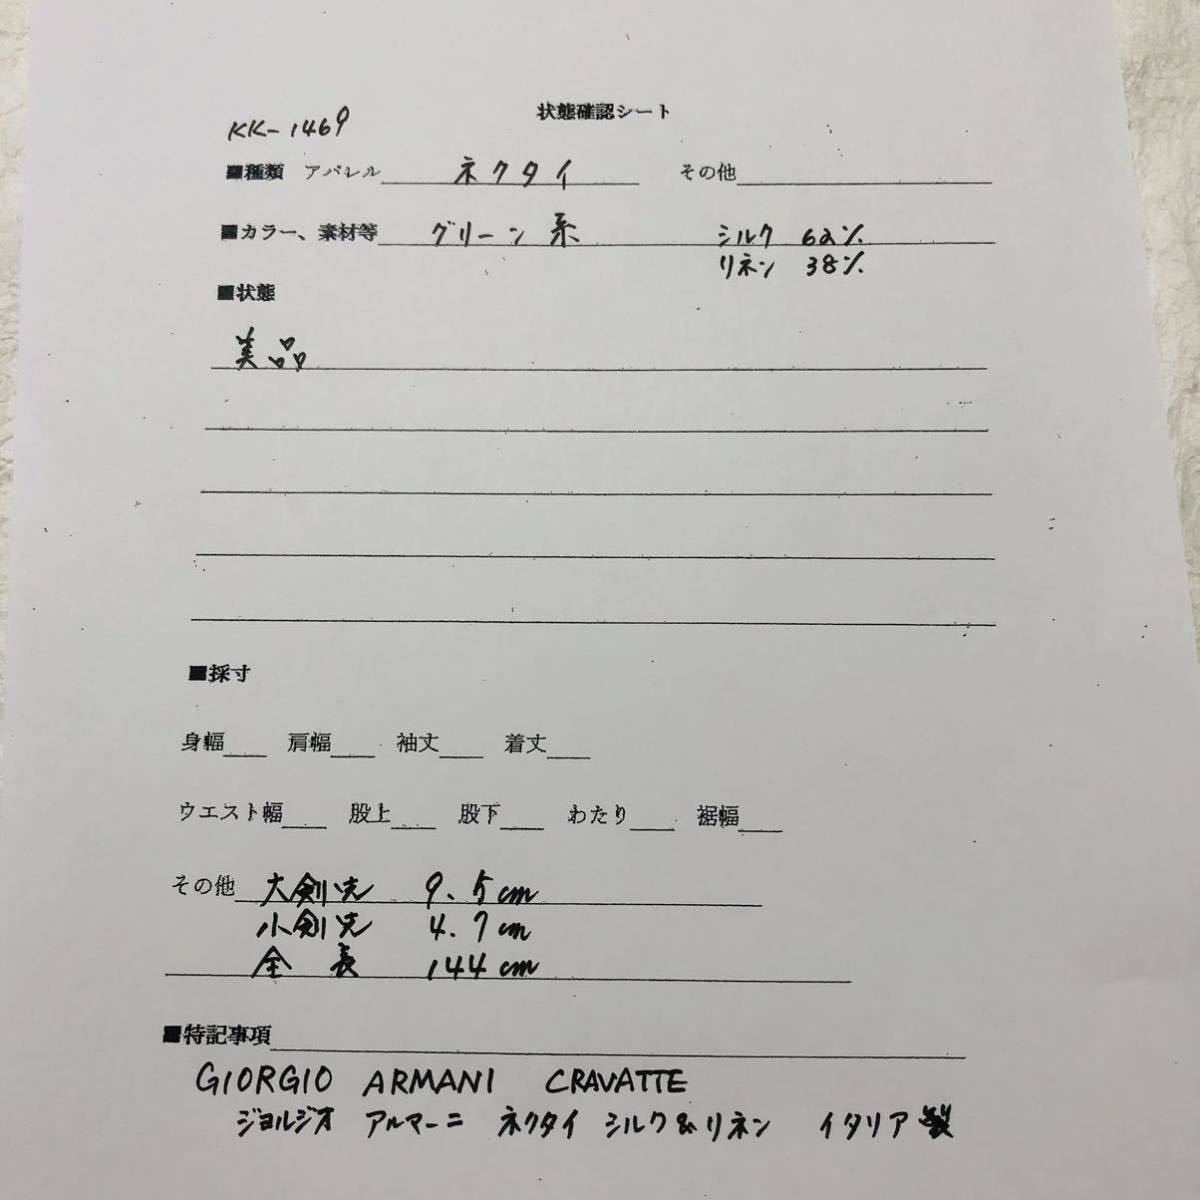 状態確認シート
KK-1469
■種類 アパレル ネクタイ その他
■カラー、素材等 グリーン系 シルク 62%
リネン 38%
■状態
美品
■採寸
身幅 肩幅 袖丈 着丈
ウエスト幅 股上 股下 わたり 裾幅
その他 大剣先 9.5cm
小剣先 4.7cm
全長 144cm
■特記事項
GIORGIO ARMANI CRAVATTE
ジョルジオ アルマーニ ネクタイ シルク&リネン イタリア製